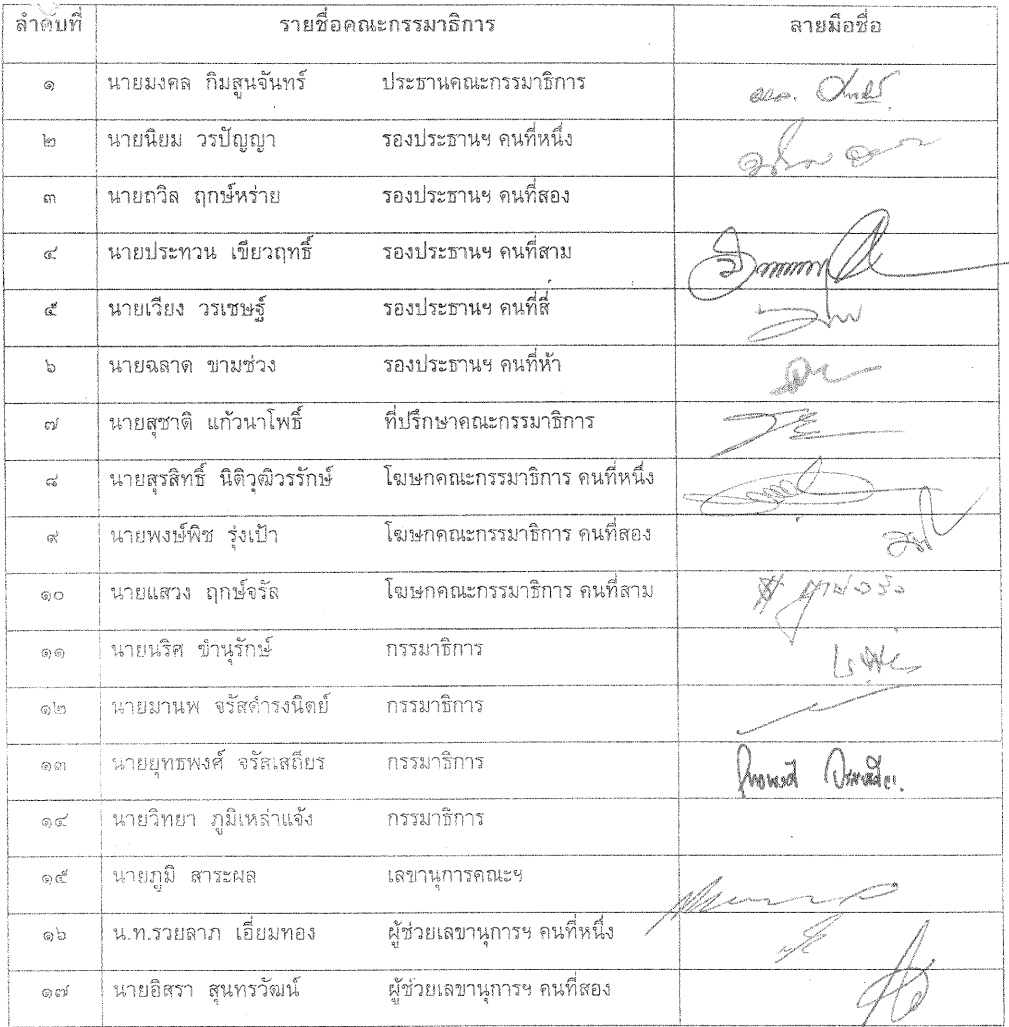 ลำดับที่ รายชื่อคณะกรรมาธิการ ลายมือชื่อ
๑ นายมงคล กิมสูนจันทร์ ประธานคณะกรรมาธิการ
๒ นายนิยม วรปัญญา รองประธานฯ คนที่หนึ่ง
๓ นายถวิล ฤกษ์หร่าย รองประธานฯ คนที่สอง
๔ นายประทวน เขียวฤทธิ์ รองประธานฯ คนที่สาม
๕ นายเวียง วรเชษฐ์ รองประธานฯ คนที่สี่
๖ นายฉลาด ขามช่วง รองประธานฯ คนที่ห้า
๗ นายสุชาติ แก้วนาโพธิ์ ที่ปรึกษาคณะกรรมาธิการ
๘ นายสุรสิทธิ์ นิติวุฒิวรรักษ์ โฆษกคณะกรรมาธิการ คนที่หนึ่ง
๙ นายพงษ์พิช รุ่งเป้า โฆษกคณะกรรมาธิการ คนที่สอง
๑๐ นายแสวง ฤกษ์จรัล โฆษกคณะกรรมาธิการ คนที่สาม
๑๑ นายนริศ ขำนุรักษ์ กรรมาธิการ
๑๒ นายมานพ จรัสดำรงนิตย์ กรรมาธิการ
๑๓ นายยุทธพงศ์ จรัสเสถียร กรรมาธิการ
๑๔ นายวิทยา ภูมิเหล่าแจ้ง กรรมาธิการ
๑๕ นายภูมิ สาระผล เลขานุการคณะฯ
๑๖ น.ท.รวยลาภ เอี่ยมทอง ผู้ช่วยเลขานุการฯ คนที่หนึ่ง
๑๗ นายอิสรา สุนทรวัฒน์ ผู้ช่วยเลขานุการฯ คนที่สอง